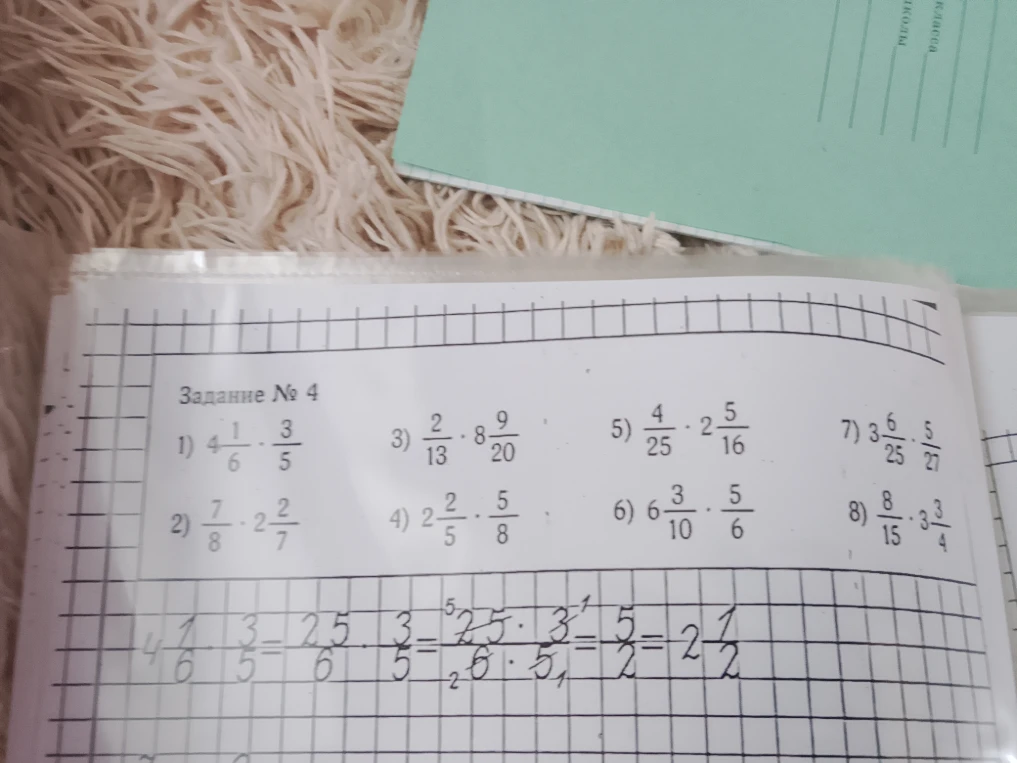 класса
школы
Задание № 4
1) 4 1/6 · 3/5 3) 2/13 · 8 9/20 5) 4/25 · 2 5/16 7) 3 6/25 · 5/27
2) 7/8 · 2 2/7 4) 2 2/5 · 5/8 6) 6 3/10 · 5/6 8) 8/15 · 3 3/4
4 1/6 · 3/5 = 25/6 · 3/5 = 5 25 · 3 1 / 2 6 · 5 1 = 5/2 = 2 1/2